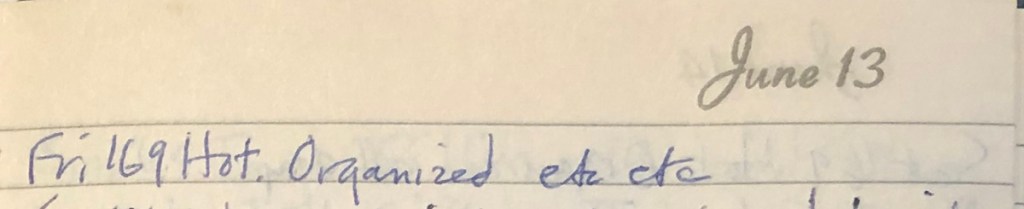 June 13
Fri 169 Hot. Organized etc etc